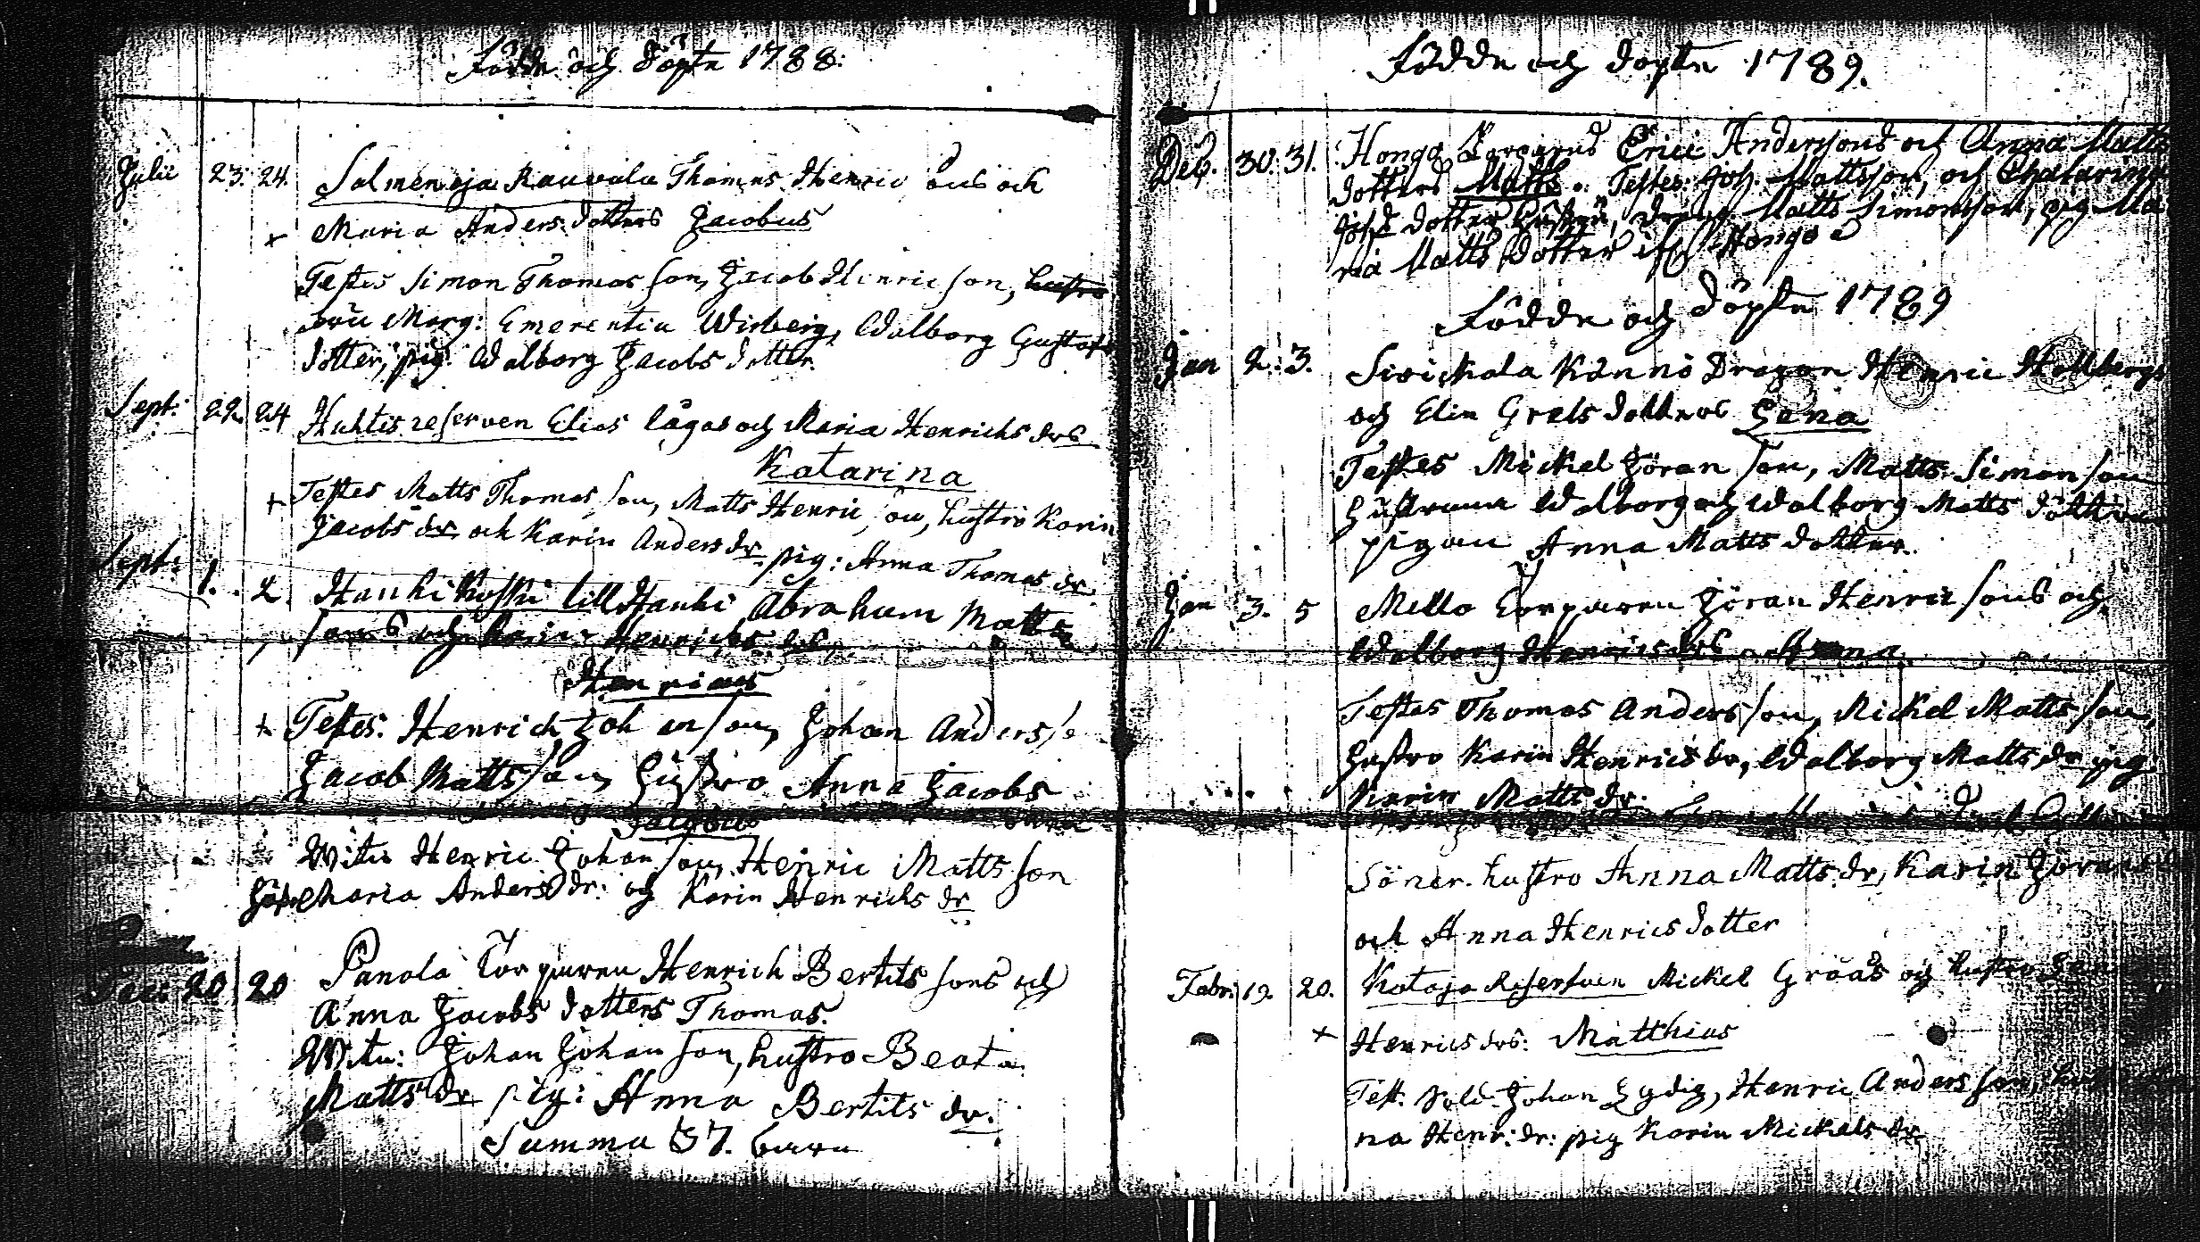 Födde och Döpte 1788:
Julii 23. 24. Salmenoja Rauvala Thomas Henric sons och
+ Maria Anders dotters Jacobus
Testes Simon Thomas son, Jacob Henric son,
Marg: Emerentia Wirberg, Walborg Gustafs
dotter, pig: Walborg Jacobs dotter.
Sept: 22 24 Huhtis reserven Elias lågas och Maria Henrichs drs
Katarina
+ Testes Matts Thomas son, Matts Henric son, hustro Karin
Jacobs dr och Karin Anders dr pig: Anna Thomas dr
Sept: 1. 2. Hanhi Koski lill Hanhi Abraham Matts
sons och Karin Henrichs drs
Henricus
+ Testes. Henrich Johan son, Johan Anders
Jacob Matts son, Hustro Anna Jacobs
Jacobus
Witn Henric Johan son, Henric Matts son
Maria Anders dr: och Karin Henrichs dr
Dec: 20 20 Panola torparen Henrich Bertils sons och
Anna Jacobs dotters Thomas.
Witn: Johan Johan son, hustro Beata
Matts dr pig: Anna Bertils dr.
Summa 57. barn
Födde och döpte 1789.
Dec. 30. 31. Hongo Torparens Eric Anderssons och Anna Matts
dotters Matts. Testes: Joh. Mattsson, och Chatarina
dotter Matts Simonsson, pig Ma
ria Matts dotter Hongo
Födde och Döpte 1789
Jan 2. 3. Sivickala Kännö Dragon Henric Hollbergs
och Elin Grels dotters Lena
Testes Mickel Jöran son, Matts Simon son
Hustruna Walborg och Walborg Matts
pigan Anna Matts dotter.
Jan 3. 5 Mello torparen Jöran Henric sons och
Walborg Henrics drs Anna
Testes Thomas Anders son, Mickel Matts son,
hustro Karin Henrics dr, Walborg Matts dr pig
Karin Matts dr.
Söner. hustro Anna Matts dr, Karin Jörans
och Anna Henrics dotter
Febr: 19. 20. Kataja Reserven Mickel Gråås och hustro
+ Henrics drs: Matthias
Test. Sold. Johan Lydig, Henric Anders son,
na Henr: dr: pig Karin Mickels dr